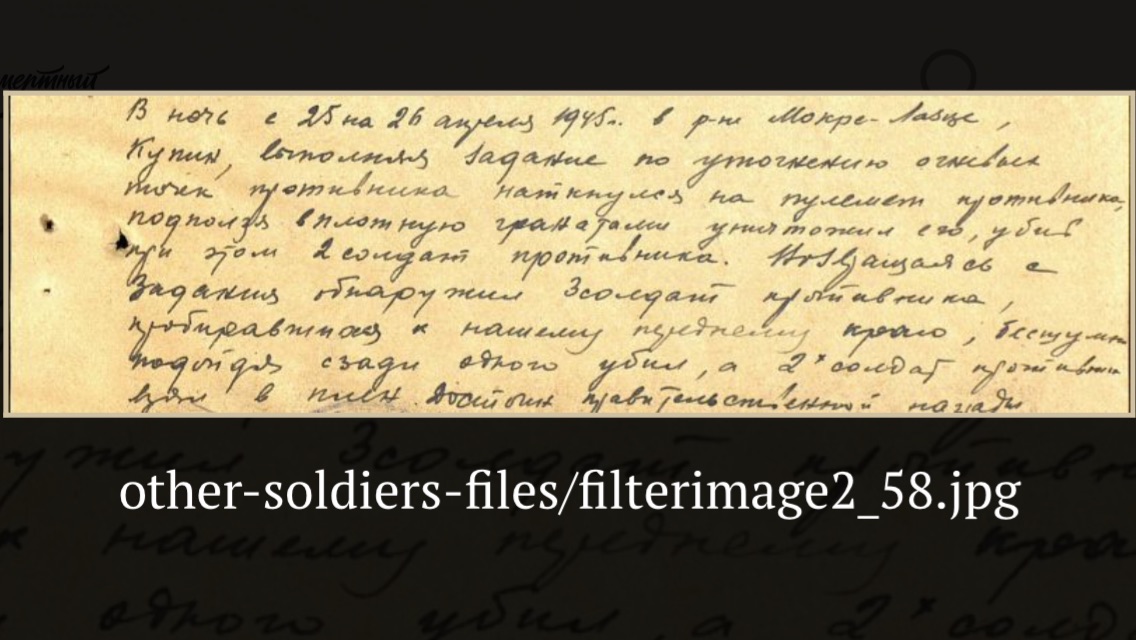 мертный
В ночь с 25 на 26 апреля 1945г. в р-не Мокре-Лазце,
Купин, выполняя задание по уточнению огневых
точек противника наткнулся на пулемет противника,
подползя вплотную гранатами уничтожил его, убив
при этом 2 солдат противника. Возвращаясь с
задания обнаружил 3 солдат противника,
пробиравшихся к нашему переднему краю, бесшумно
подойдя сзади одного убил, а 2х солдат противника
взял в плен. Достоин правительственной награды
other-soldiers-files/filterimage2_58.jpg